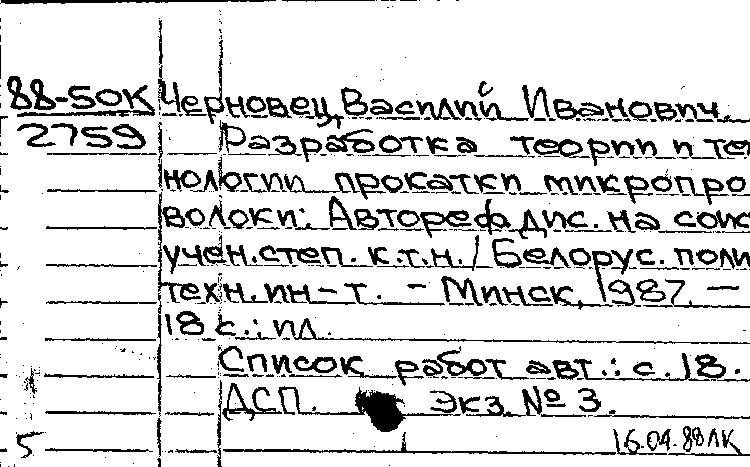 88-50К Черновец, Василий Иванович.
2759 Разработка теории и те
нологии прокатки микропро
волоки: Автореф. дис. на соис
учен. степ. к.т.н. / Белорус. поли
техн. ин-т. - Минск, 1987. -
18 с.: ил.
Список работ авт.: с. 18.
ДСП. Экз. № 3.
5 15.04.88 ЛК